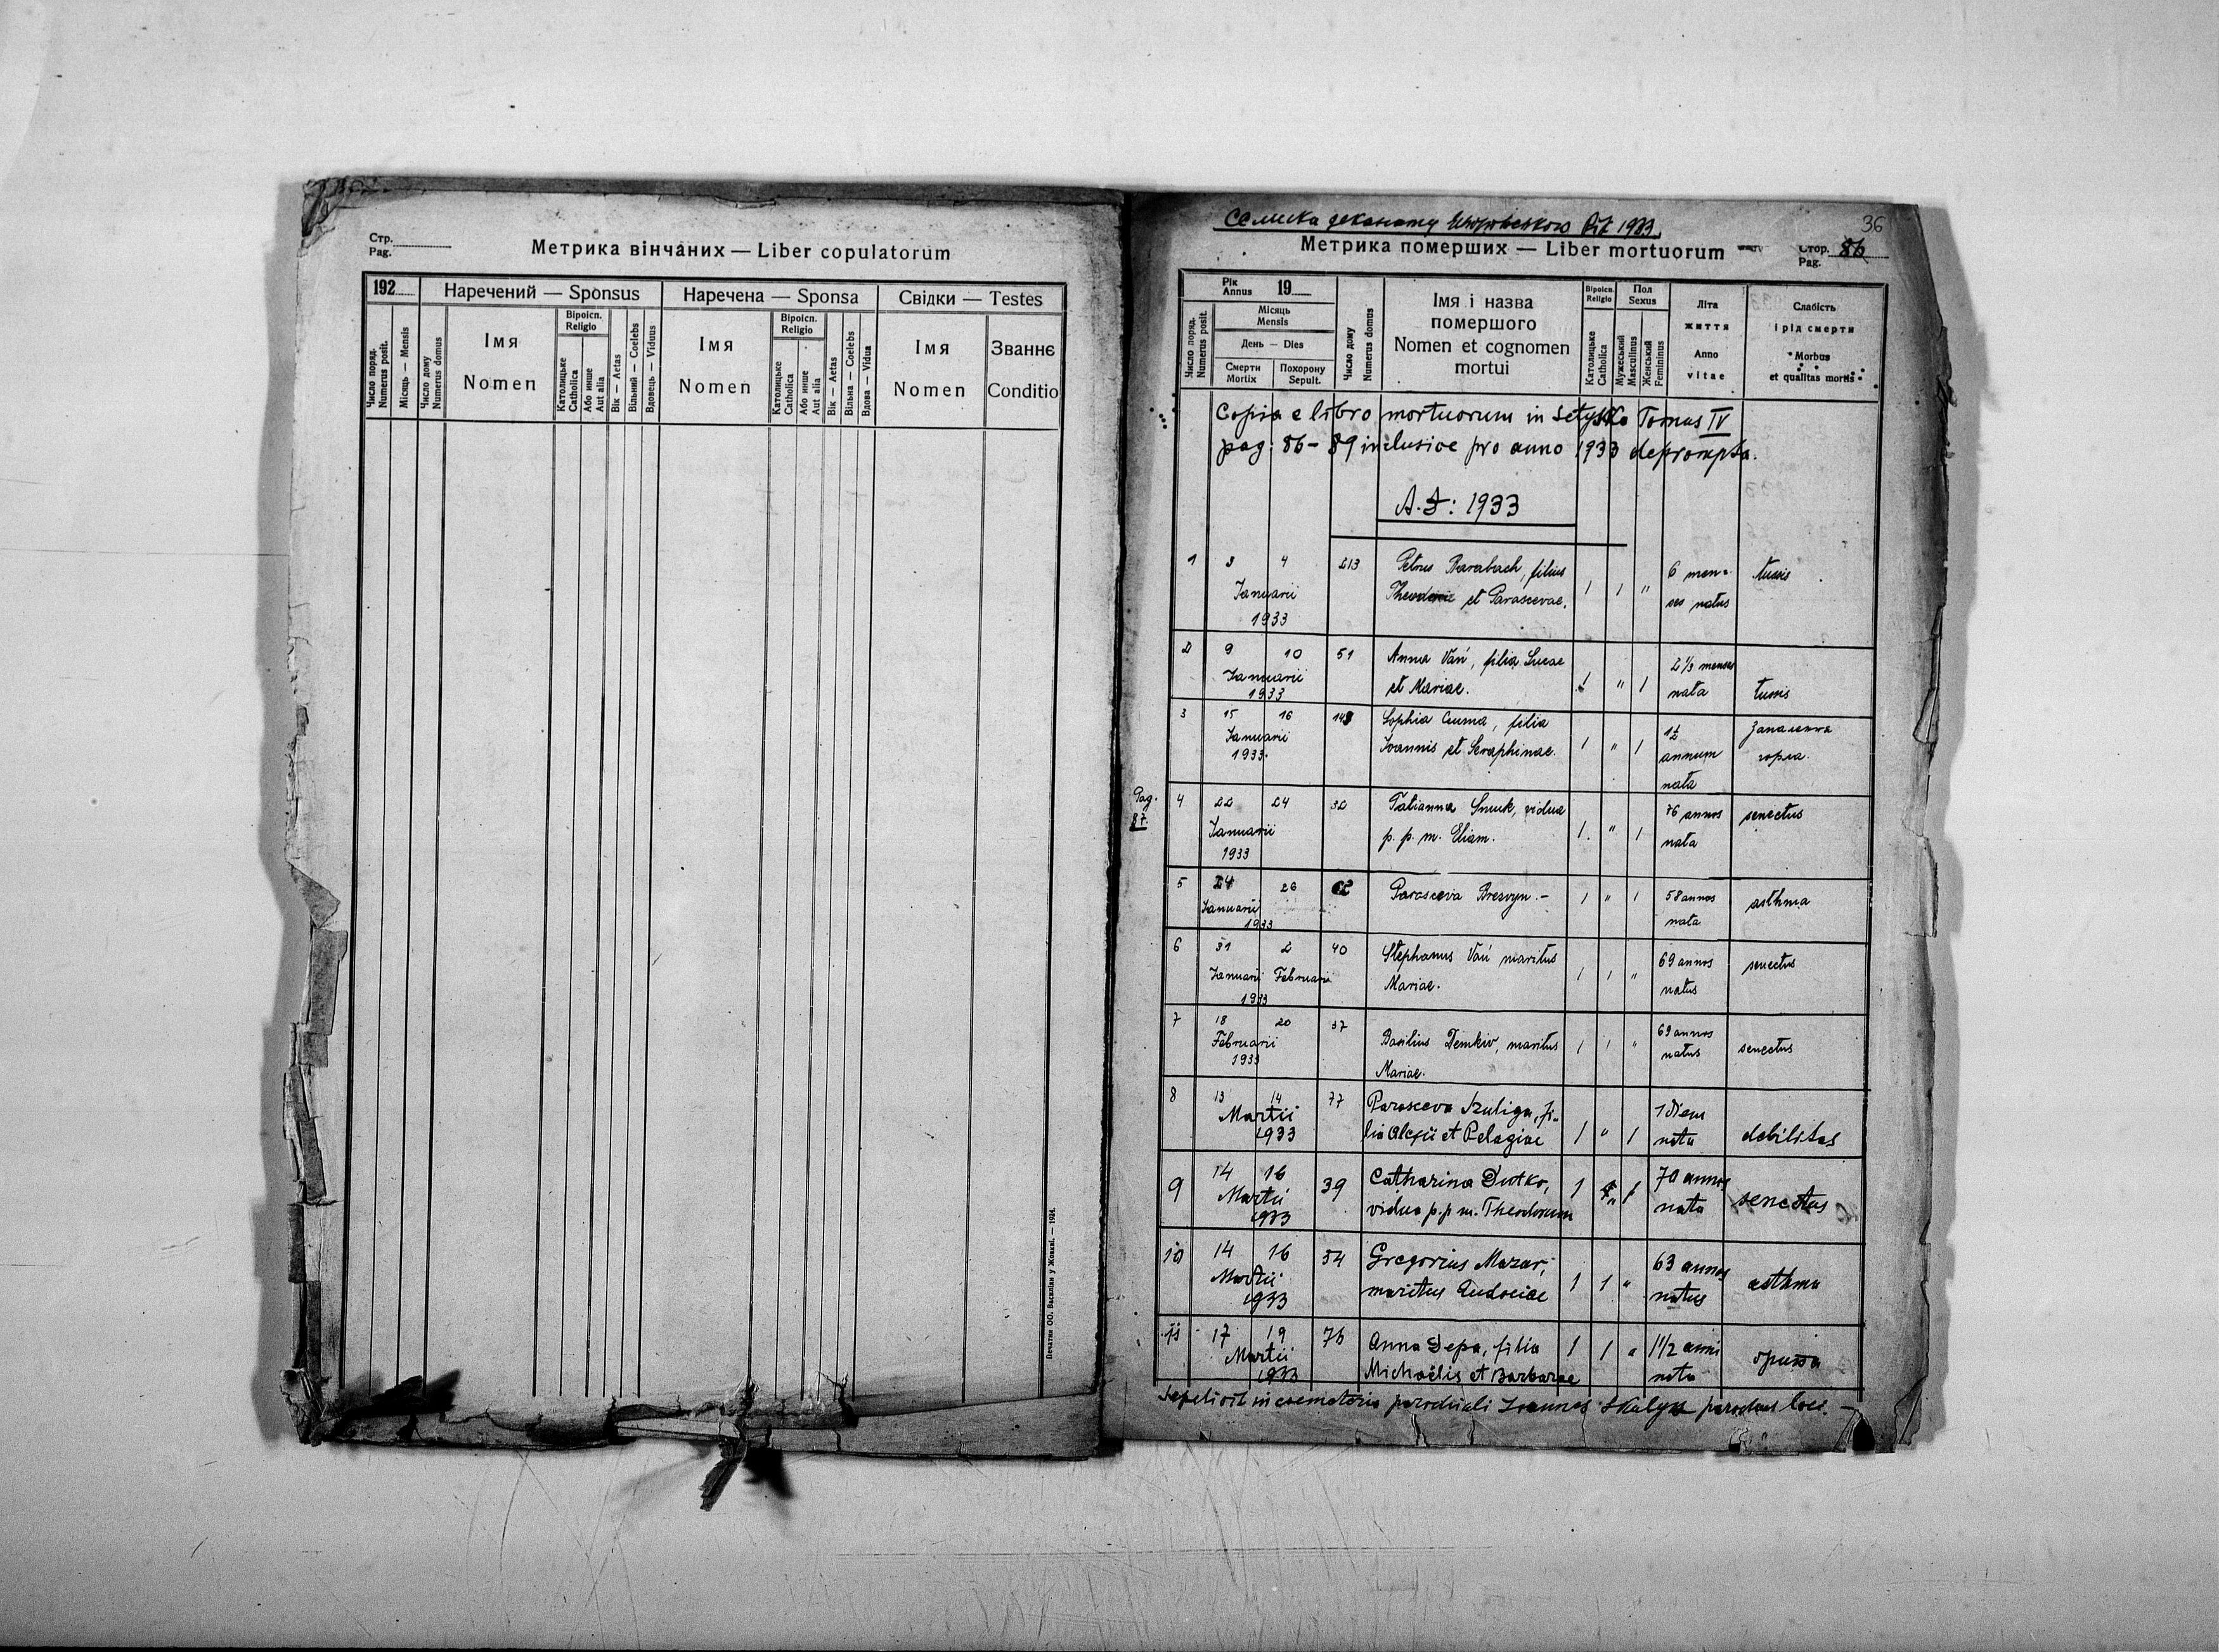 Стр.
Pag.
Метрика вінчаних — Liber copulatorum
192
Наречений — Sponsus
Наречена — Sponsa
Свідки — Testes
Число поряд.
Numerus posit.
Місяць — Mensis
Число дому
Numerus domus
Імя
Nomen
Віроісп.
Religio
Католицьке
Catholica
Або инше
Aut alia
Вік — Aetas
Вільний — Coelebs
Вдовець — Viduus
Імя
Nomen
Віроісп.
Religio
Католицьке
Catholica
Або инше
Aut alia
Вік — Aetas
Вільна — Coelebs
Вдова — Vidua
Імя
Nomen
Званнє
Conditio
Печатня ОО. Василіян у Жовкві. — 1924.
36
деканату 1933.
Метрика померших — Liber mortuorum
Стор. 86
Pag.
Рік
Annus 19
Число поряд.
Numerus posit.
Місяць
Mensis
День — Dies
Смерти
Mortix
Похорону
Sepult.
Число дому
Numerus domus
Імя і назва
помершого
Nomen et cognomen
mortui
Віроісп.
Religio
Католицьке
Catholica
Пол
Sexus
Мужеський
Masculinus
Женський
Femininus
Літа
життя
Anno
vitae
Слабість
і рід смерти
Morbus
et qualitas mortis
Copia e libro mortuorum in Tomus IV
pag: 86-89 inclusive pro anno 1933 deprompta.
A. D: 1933
1 3 4 213 Petrus Barabach, filius 6 men= tussis
Januarii Theodori et Parascevae. 1 1 " ses natus
1933
2 9 10 51 Anna Vań, filia Lucae 2 1/3 menses
Januarii et Mariae. 1 " 1 nata tussis
1933
3 15 16 Sophia Cuma, filia 1½
Januarii Joannis et Seraphinae. 1 " 1 annum
1933. nata
Pag.
87.
4 22 24 32 Tatianna Smuk, vidua 76 annos senectus
Januarii p. p. m. Eliam. 1 " 1 nata
1933
5 24 26 Parasceva 1 " 1 58 annos asthma
Januarii nata
1933
6 31 2 40 Stephanus Vań maritus 69 annos senectus
Januarii Februarii Mariae. 1 1 " natus
1933
7 18 20 37 Basilius Demkiv, maritus 1 1 " 69 annos senectus
Februarii Mariae. natus
1933
8 13 14 77 Parasceva Szuliga, fi= 1 diem
Martii lia Alexii et Pelagiae 1 " 1 nata debilitas
1933
9 14 16 39 Catharina Dutko, 1 " 1 70 annos senectus
Martii vidua p.p m. Theodorum nata
1933
10 14 16 54 Gregorius Mazar, 63 annos asthma
Martii maritus Eudociae 1 1 " natus
1933
11 17 19 76 Anna Depa, filia 1 1 " 1 1/2 anni
Martii Michaëlis et Barbarae nata
1933
Sepelivit in coemeterio parochiali Joannes Skalysz parochus loci. —